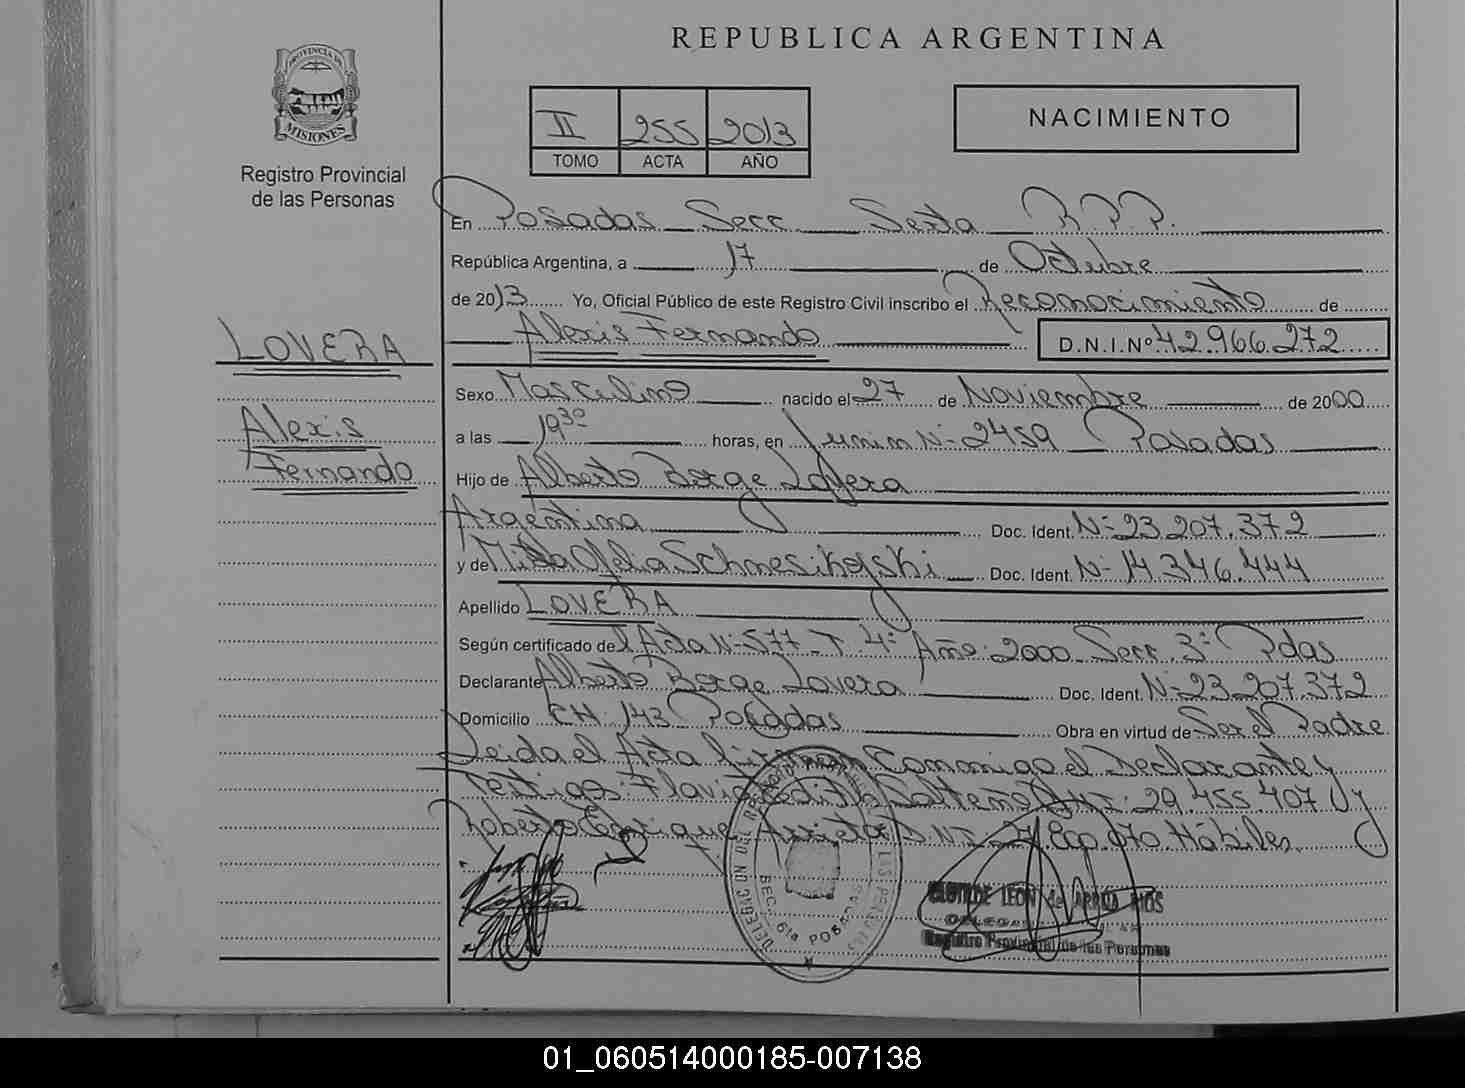 REPUBLICA ARGENTINA
PROVINCIA DE
MISIONES
Registro Provincial
de las Personas
II 255 2013
TOMO ACTA AÑO
NACIMIENTO
En Posadas Secc Sexta R.P.P.
República Argentina, a 17 de Octubre
de 2013 Yo, Oficial Público de este Registro Civil inscribo el Reconocimiento de
Alexis Fernando D.N.I.Nº 42.966.272
LOVERA
Alexis
Fernando
Sexo Masculino nacido el 27 de Noviembre de 2000
a las 19³⁰ horas, en Junin Nº 2459 Posadas
Hijo de Alberto Jorge Lovera
Argentina Doc. Ident. Nº 23.207.372
y de Ofelia Doc. Ident. Nº 14.346.444
Apellido LOVERA
Según certificado del Acta Nº 577 T. 4º Año 2000 Secc. 3º Pdas
Declarante Alberto Jorge Lovera Doc. Ident. Nº 23.207.372
Domicilio CH 143 Posadas Obra en virtud de Ser el Padre
Leida el Acta firman Conmigo el Declarante y
Testigos: Flavia Edith DNI: 29.455.407 y
Roberto Enrique Arrieta D.N.I. Hábiles.
SECC. 6ta POSADAS
CLOTILDE LEON de ARRUA RIOS
Registro Provincial de las Personas
01_060514000185-007138